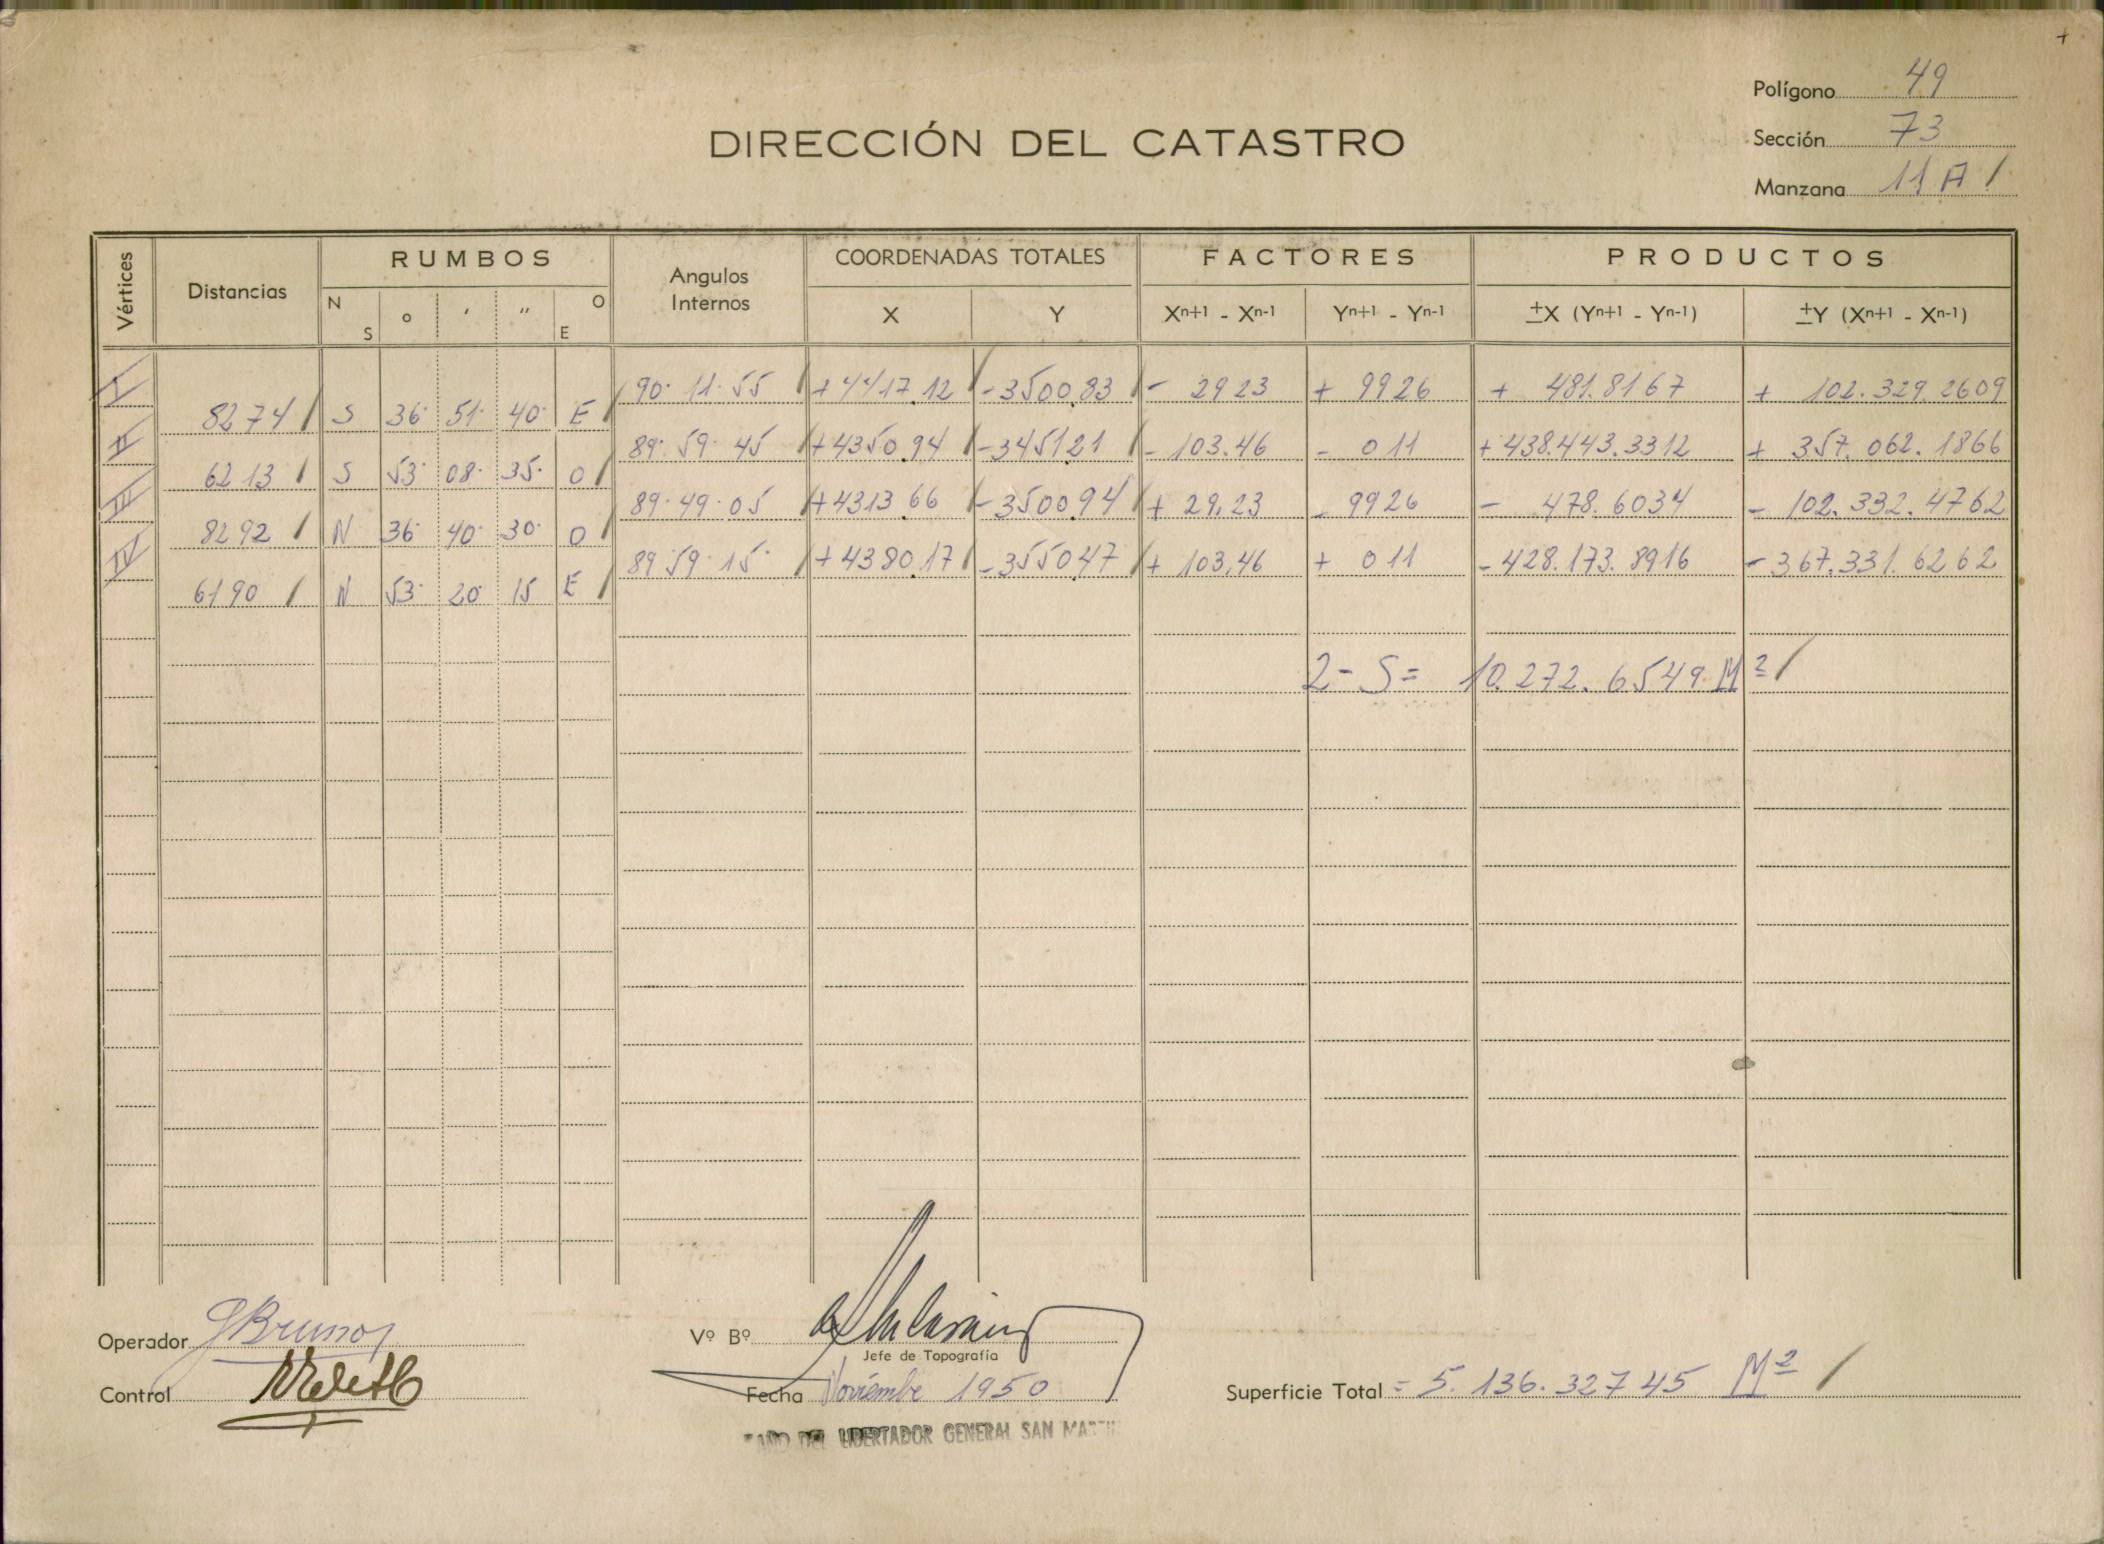 Polígono 49
DIRECCIÓN DEL CATASTRO
Sección 73
Manzana 11 A /
Vértices Distancias RUMBOS Angulos Internos COORDENADAS TOTALES FACTORES PRODUCTOS
N S o ′ ″ O E X Y Xn+1 - Xn-1 Yn+1 - Yn-1 ±X (Yn+1 - Yn-1) ±Y (Xn+1 - Xn-1)
I 90· 11· 55 / +4417.12 / -3500.83 / - 2923 + 9926 + 481.8167 + 102.329.2609
8274 / S 36· 51· 40· E /
II 89· 59· 45 / +4350.94 / -345121 / - 103.46 - 011 +438.443.3312 + 357.062.1866
6213 / S 53· 08· 35· O /
III 89· 49· 05 / +4313.66 / -3500.94 / + 29.23 - 9926 - 478.6034 - 102.332.4762
8292 / N 36· 40· 30· O /
IV 89 59· 15· / +4380.17 / -3550.47 / + 103,46 + 011 -428.173.8916 -367.331.6262
6190 / N 53· 20· 15 E /
2-S= 10.272.6549.M² /
Operador
Vº Bº
Jefe de Topografía
Control
Fecha Noviembe 1950
Superficie Total = 5.136.32745 M² /
"AÑO DEL LIBERTADOR GENERAL SAN MARTIN